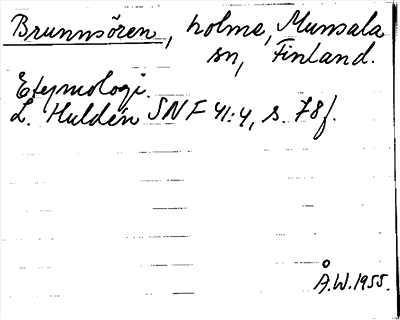 Brunnsören, holme, Munsala
sn, Finland.
Etymologi.
L. Huldén SNF 41:4, s. 78f.
Å.W.1955.